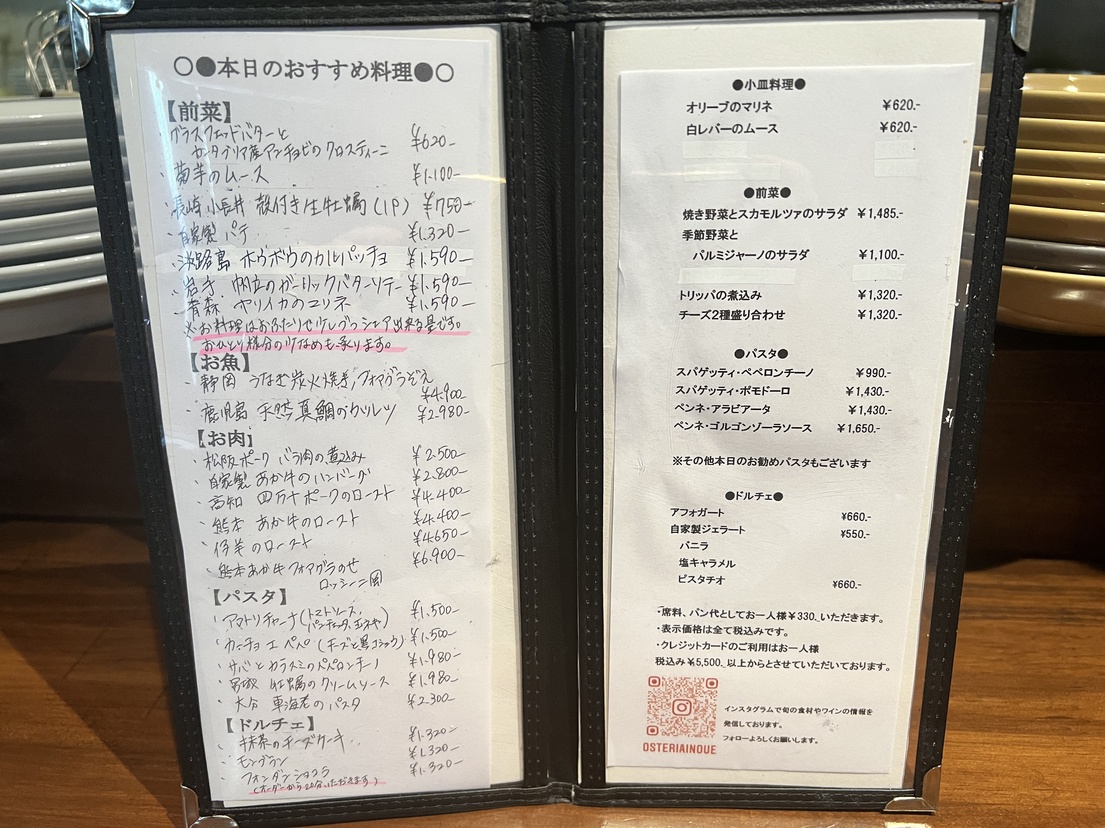 ○●本日のおすすめ料理●○
【前菜】
・グラスフェッドバターと
カンタブリア産アンチョビのクロスティーニ ¥620-
・菊芋のムース ¥1.100-
・長崎 小長井 殻付き生牡蠣(1P) ¥750-
・自家製 パテ ¥1.320-
・淡路島 ホウボウのカルパッチョ ¥1.590-
・岩手 帆立のガーリックバターソテー ¥1.590-
・青森 ヤリイカのマリネ ¥1.590-
※お料理はおふたりで少しづつシェア出来る量です。
おひとり様分の少なめも承ります。
【お魚】
・静岡 うなぎ炭火焼き,フォアグラぞえ
¥4.900-
・鹿児島 天然真鯛のカツレツ ¥2.980-
【お肉】
・松阪ポーク バラ肉の煮込み ¥2.500-
・自家製 あか牛のハンバーグ ¥2.800-
・高知 四万十ポークのロースト ¥4.400-
・熊本 あか牛のロースト ¥4.400-
・仔羊のロースト ¥4.650-
・熊本あか牛フォアグラのせ ¥6.900-
ロッシーニ風
【パスタ】
・アマトリチャーナ(トマトソース,
パンチェッタ,玉ネギ) ¥1.500-
・カーチョ エ ペペ (チーズと黒コショウ) ¥1.500-
・サバとカラスミのペペロンチーノ ¥1.980-
・宮城 牡蠣のクリームソース ¥1.980-
・大分 車海老のパスタ ¥2.300-
【ドルチェ】
・抹茶のチーズケーキ ¥1.320-
・モンブラン ¥1.320-
・フォンダンショコラ ¥1.320-
(オーダーから20分いただきます)
●小皿料理●
オリーブのマリネ ¥620.-
白レバーのムース ¥620.-
●前菜●
焼き野菜とスカモルツァのサラダ ¥1,485.-
季節野菜と
パルミジャーノのサラダ ¥1,100.-
トリッパの煮込み ¥1,320.-
チーズ2種盛り合わせ ¥1,320.-
●パスタ●
スパゲッティ・ペペロンチーノ ¥990.-
スパゲッティ・ポモドーロ ¥1,430.-
ペンネ・アラビアータ ¥1,430.-
ペンネ・ゴルゴンゾーラソース ¥1,650.-
※その他本日のお勧めパスタもございます
●ドルチェ●
アフォガート ¥660.-
自家製ジェラート ¥550.-
バニラ
塩キャラメル
ピスタチオ ¥660.-
・席料、パン代としてお一人様¥330.いただきます。
・表示価格は全て税込みです。
・クレジットカードのご利用はお一人様
税込み¥5,500.以上からとさせていただいております。
インスタグラムで旬の食材やワインの情報を
発信しております。
フォローよろしくお願いします。
OSTERIAINOUE